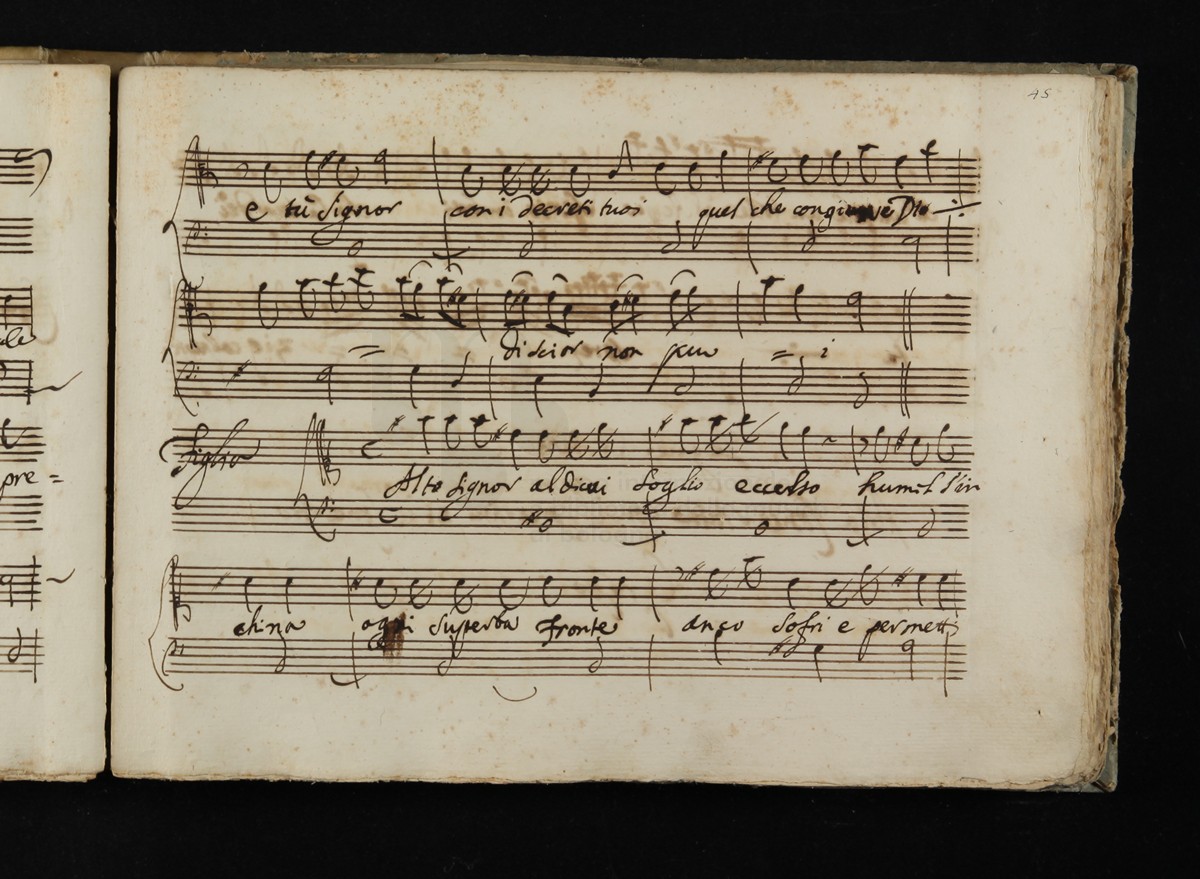 45
e tù Signor con i decreti tuoi quel che congiunge Dio
discior non puo = i
figlia
Alto Signor al di cui soglio eccelso humil s'in
pre=
china ogni superba fronte
ce
anco sofri e permetti